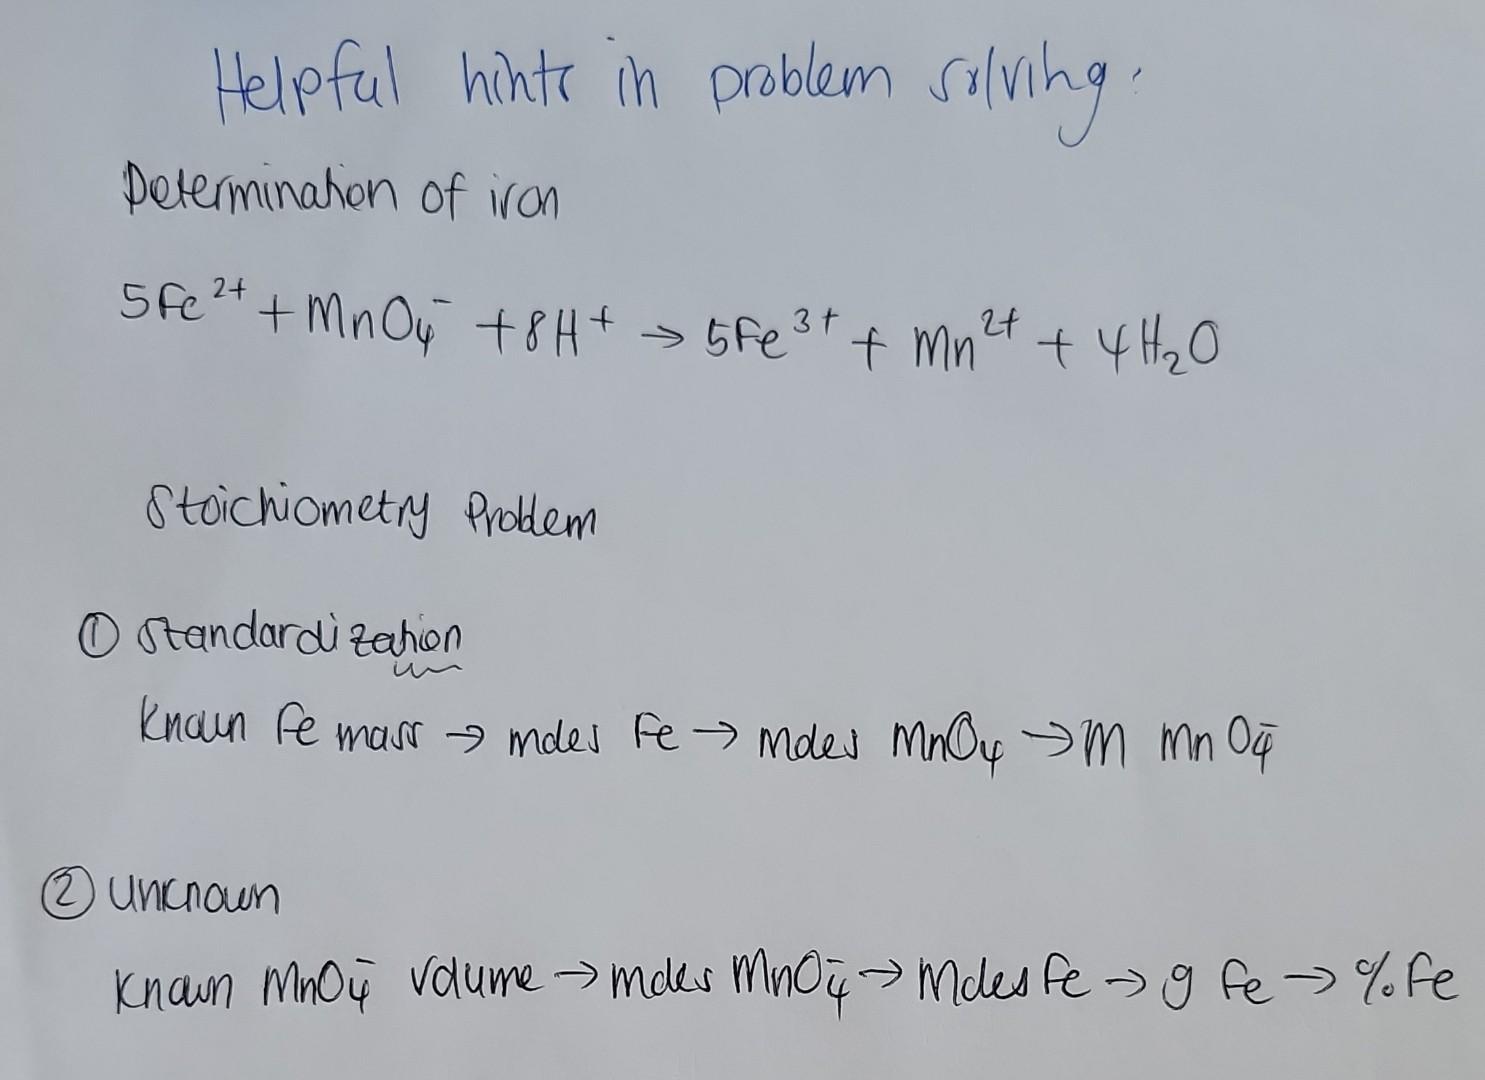 Helpful hints in problem solving:
Determination of iron
5Fe²⁺ + MnO₄⁻ + 8H⁺ → 5Fe³⁺ + Mn²⁺ + 4H₂O
Stoichiometry Problem
① Standardization
Known Fe mass → moles Fe → moles MnO₄ → M MnO₄⁻
② Uncnown
Known MnO₄⁻ volume → moles MnO₄⁻ → Moles Fe → g Fe → % Fe